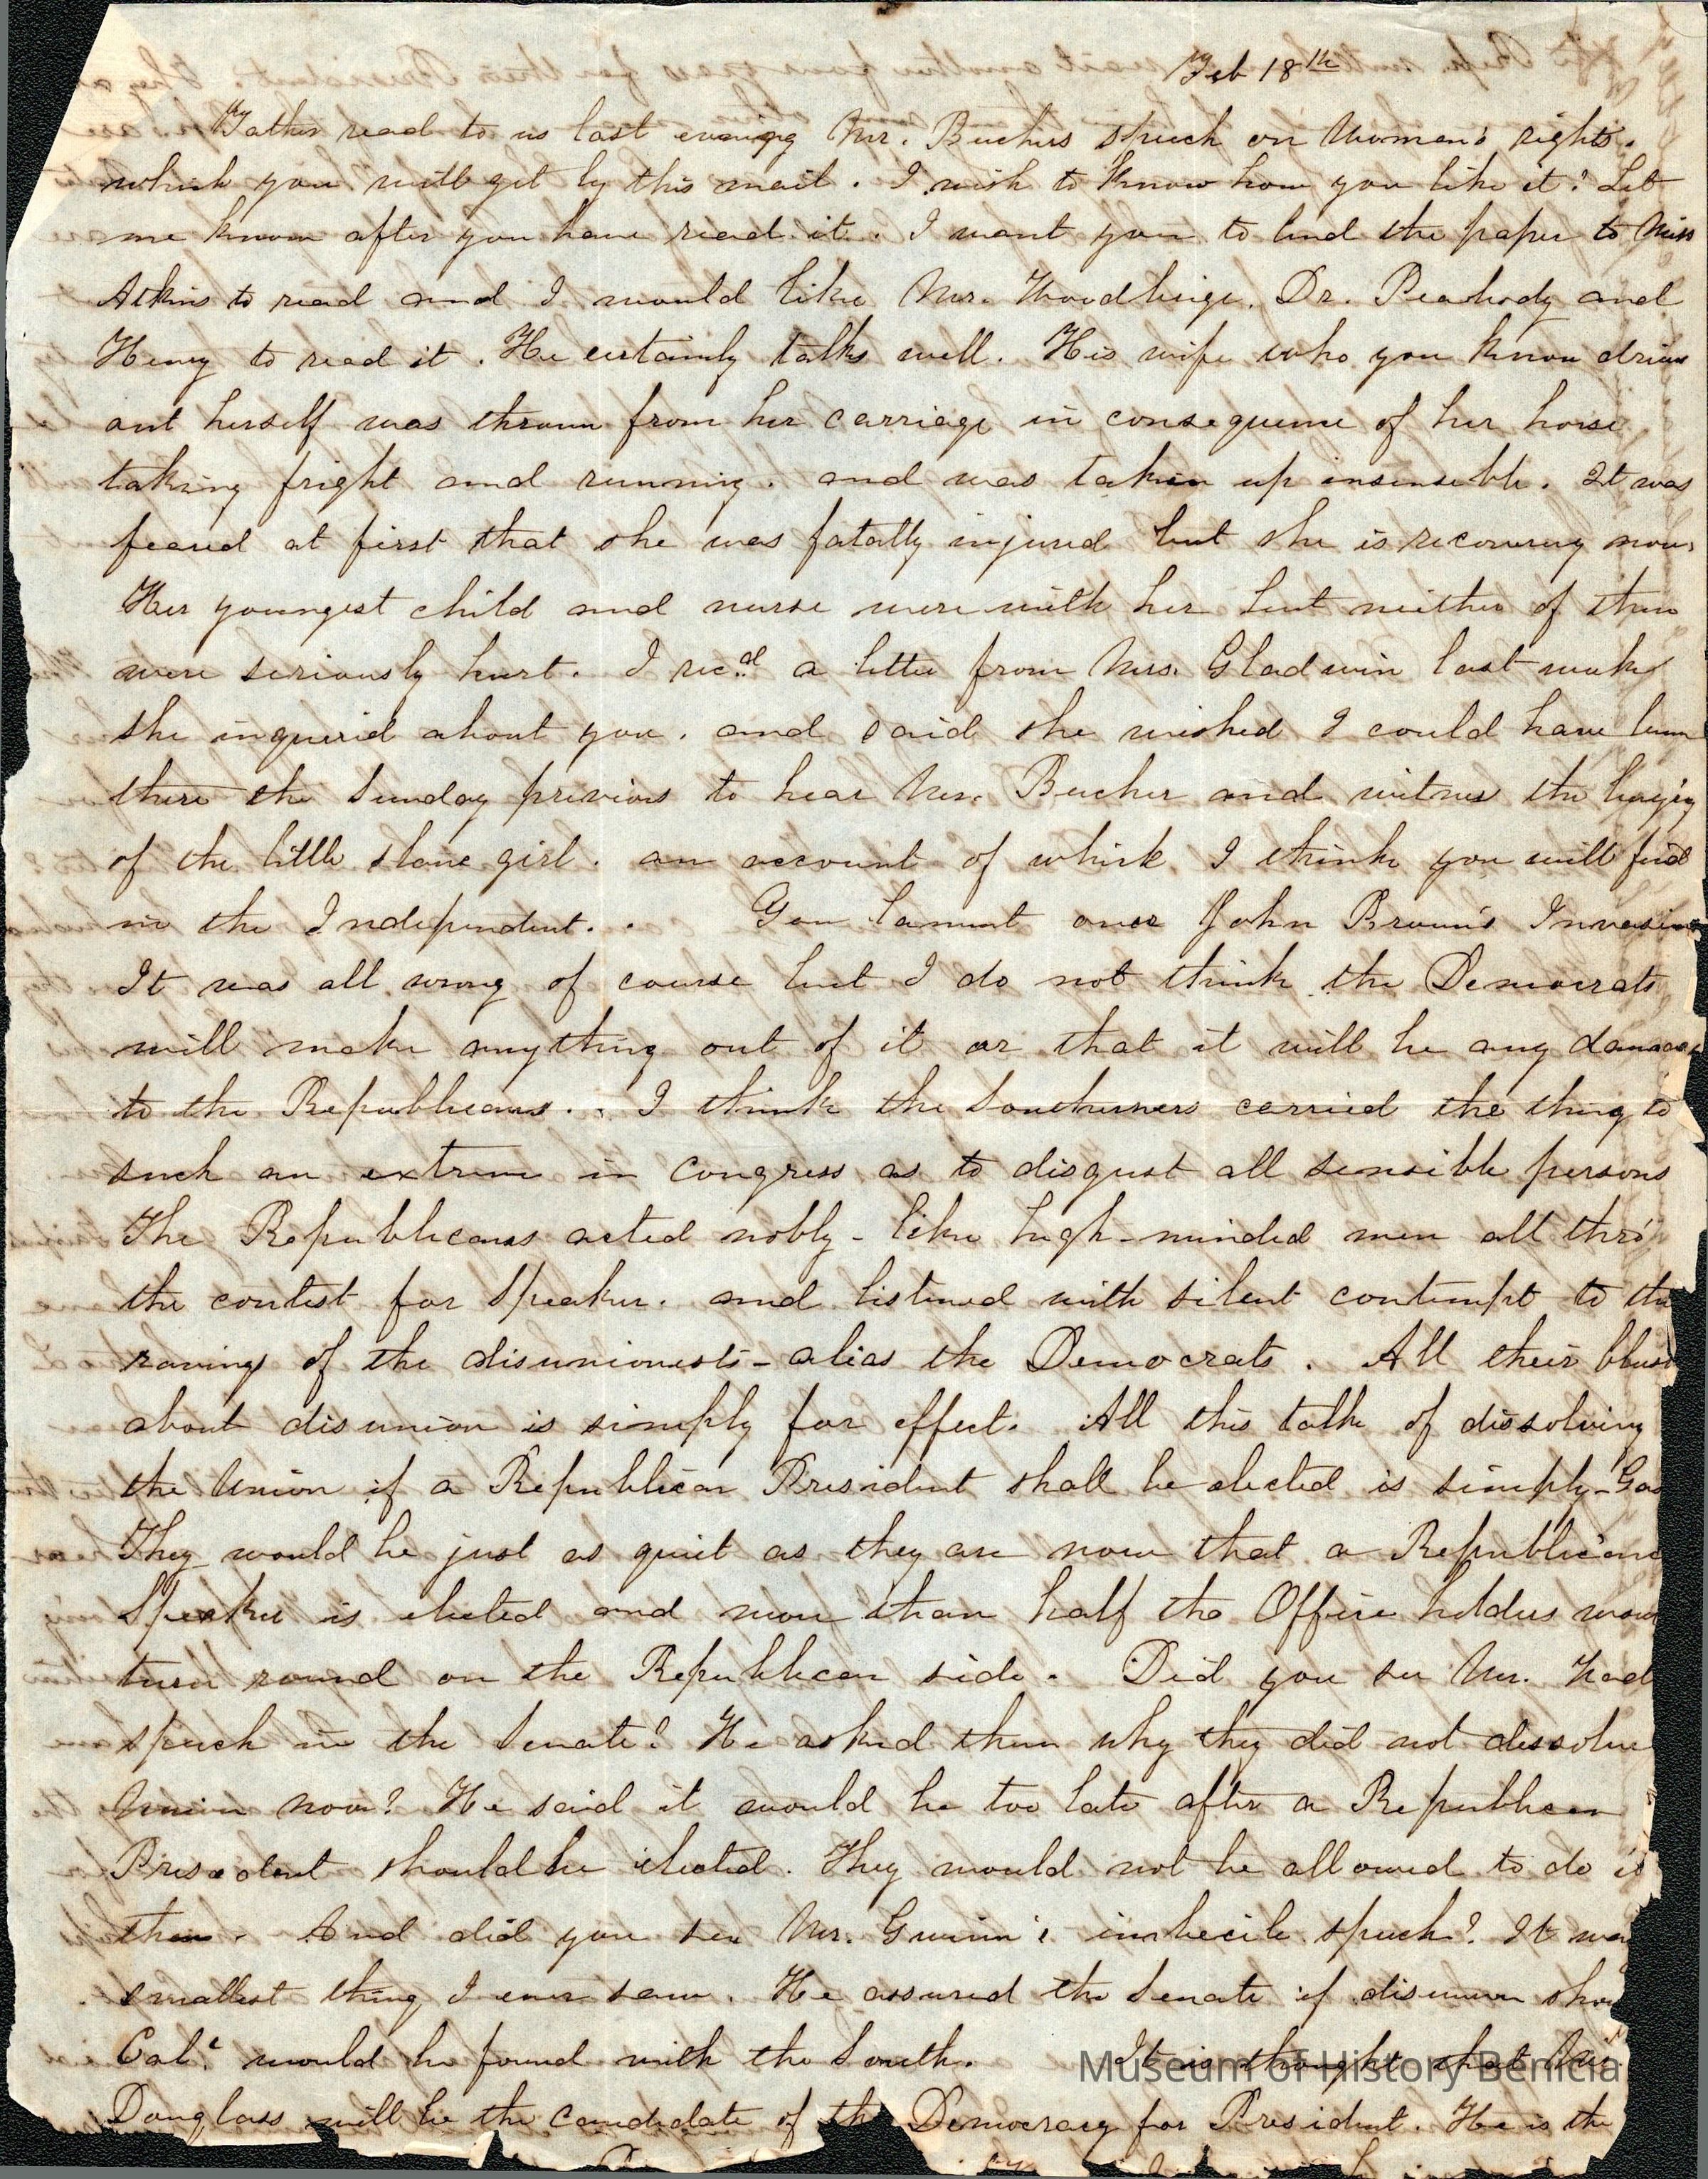 Feb 18th
Father read to us last evening Mr. Beechers speech on Women's rights.
which you will get by this mail. I wish to know how you like it? Let
me know after you have read it. I want you to lend the paper to Miss
Atkins to read and I would like Mr. Woodbridge, Dr. Peabody and
Henry to read it. He certainly talks well. His wife who you know drives
out herself was thrown from her carriage in consequence of her horse
taking fright and running. and was taken up insensible. It was
feared at first that she was fatally injured but she is recovering now.
Her youngest child and nurse were with her but neither of them
were seriously hurt. I recd a letter from Mrs. Gladwin last week
she inquired about you. and said she wished I could have been
there the Sunday previous to hear Mr. Beecher and witness the buying
of the little slave girl. an account of which I think you will find
in the Independent. . You lament over John Brown's Invasion
It was all wrong of course but I do not think the Democrats
will make anything out of it or that it will be any damage
to the Republicans. . I think the Southerners carried the thing to
such an extreme in Congress as to disgust all sensible persons
The Republicans acted nobly - like high-minded men all thro'
the contest for Speaker. and listened with silent contempt to the
ravings of the disunionists - alias the Democrats. All their blust
about disunion is simply for effect. All this talk of dissolving
the Union if a Republican President shall be elected is simply - Gas
They would be just as quiet as they are now that a Republican
Speaker is elected and more than half the Office holders wou
turn round on the Republican side. Did you see Mr.
speech in the Senate? He asked them why they did not dissolve
Union now? He said it would be too late after a Republican
President should be elected. They would not be allowed to do it
then. And did you see Mr. Gwinn's imbecile speech? It was
smallest thing I ever saw. He assured the Senate if disunion shou
Cala would be found with the South. It is thought that
Douglass will be the candidate of the Democracy for President. He is the
Museum of History Benicia